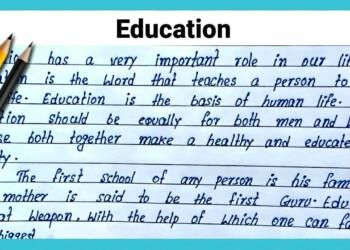 Education
has a very important role in our
is the word that teaches a person to
Education is the basis of human life.
should be equally for both men and
both together make a healthy and educate
The first school of any person is his fam
mother is said to be the first Guru. Edu
Weapon. With the help of which one can fa